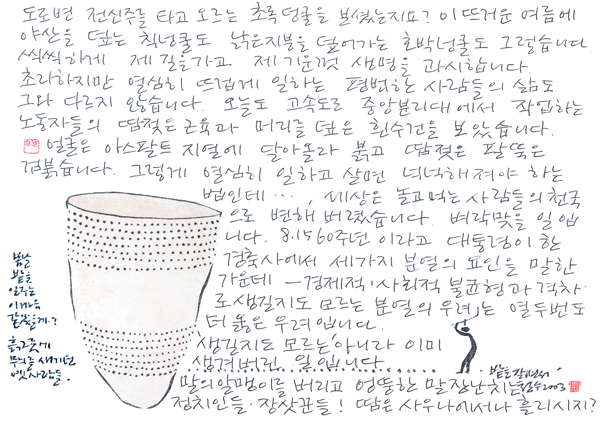 도로변 전신주를 타고 오르는 초록 덩쿨을 보셨는지요? 이 뜨거운 여름에
야산을 덮는 칡넝쿨도 낡은지붕을 덮어가는 호박넝쿨도 그렇습니다.
씩씩하게 제 길을가고 제 기운껏 생명을 과시합니다.
초라하지만 열심히 뜨겁게 일하는 평범한 사람들의 삶도
그와 다르지 않습니다. 오늘도 고속도로 중앙분리대에서 작업하는
노동자들의 땀젖은 근육과 머리를 덮은 흰수건을 보았습니다.
얼굴은 아스팔트 지열에 달아올라 붉고 땀젖은 팔뚝은
검붉습니다. 그렇게 열심히 일하고 살면 넉넉해져야 하는
법인데···, 세상은 놀고먹는 사람들의 천국
으로 변해 버렸습니다. 벼락맞을 일입
니다. 8.15 60주년 이라고 대통령이 한
경축사에서 세가지 분열의 요인을 말한
가운데 「경제적·사회적 불균형과 격차
로 생길지도 모르는 분열의 우려」는 열두번도
더 옳은 우려입니다.
'생길지도 모르는'아니라 이미
생겨버린 일입니다.
말의 알맹이를 버리고 엉뚱한 말장난치는
정치인들·장삿꾼들! 땀은 사우나에서나 흘리시지?
봄날
밭을
일구는
이가
흙그릇에
무늬를 새기던
옛사람들.
밭을 갈면서
철수2003